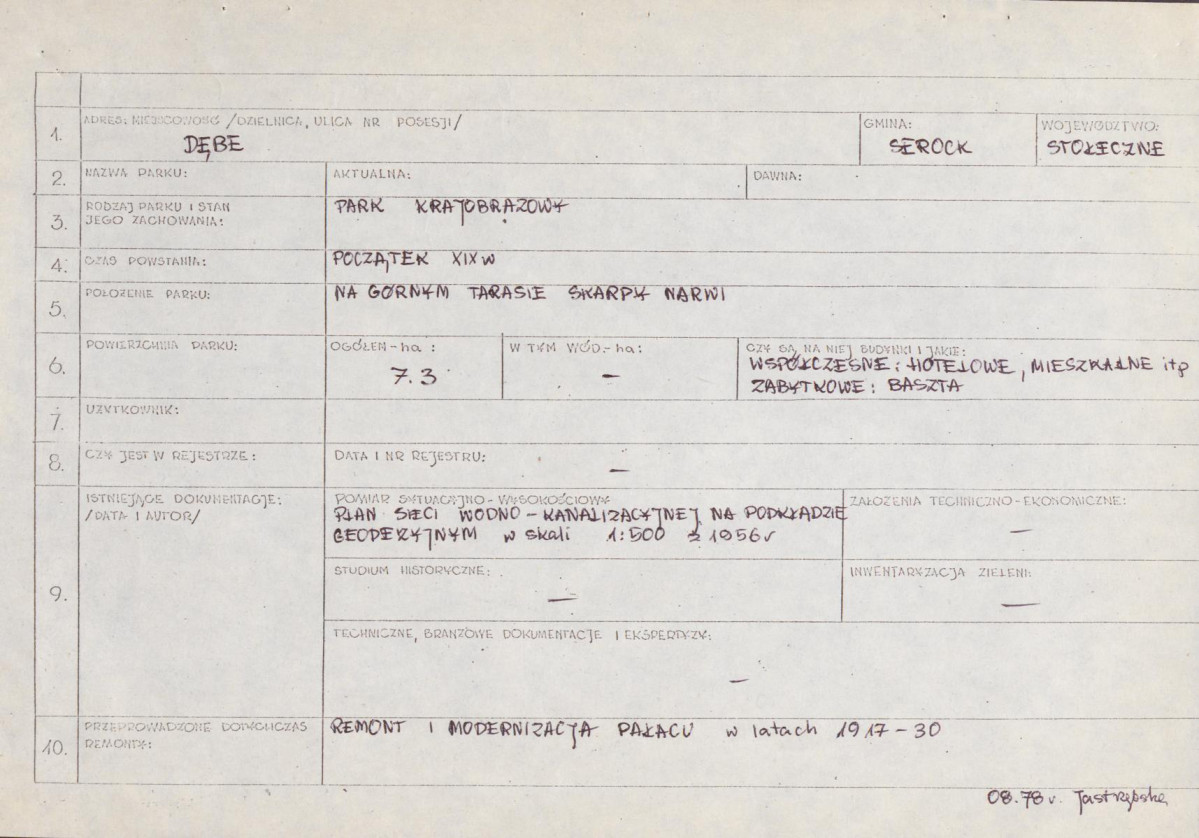 1. ADRES: MIEJSCOWOŚĆ /DZIELNICA, ULICA NR POSESJI/ GMINA: WOJEWÓDZTWO:
DĘBE SEROCK STOŁECZNE
2. NAZWA PARKU: AKTUALNA: DAWNA:
3. RODZAJ PARKU I STAN JEGO ZACHOWANIA: PARK KRAJOBRAZOWY
4. CZAS POWSTANIA: POCZĄTEK XIX w
5. POŁOŻENIE PARKU: NA GÓRNYM TARASIE SKARPY NARWI
6. POWIERZCHNIA PARKU: OGÓŁEM-ha: W TYM WÓD.-ha: CZY SĄ NA NIEJ BUDYNKI I JAKIE:
7.3 – WSPÓŁCZESNE: HOTELOWE, MIESZKALNE itp
ZABYTKOWE: BASZTA
7. UŻYTKOWNIK:
8. CZY JEST W REJESTRZE: DATA I NR REJESTRU: –
9. ISTNIEJĄCE DOKUMENTACJE:
/DATA I AUTOR/
POMIAR SYTUACYJNO-WYSOKOŚCIOWY
PLAN SIECI WODNO-KANALIZACYJNEJ NA PODKŁADZIE
GEODEZYJNYM w skali 1:500 z 1956r
ZAŁOŻENIA TECHNICZNO-EKONOMICZNE:
–
STUDIUM HISTORYCZNE:
–
INWENTARYZACJA ZIELENI:
–
TECHNICZNE, BRANŻOWE DOKUMENTACJE I EKSPERTYZY:
–
10. PRZEPROWADZONE DOTYCHCZAS
REMONTY:
REMONT I MODERNIZACJA PAŁACU w latach 1917-30
08.78 r. Jastrzębska